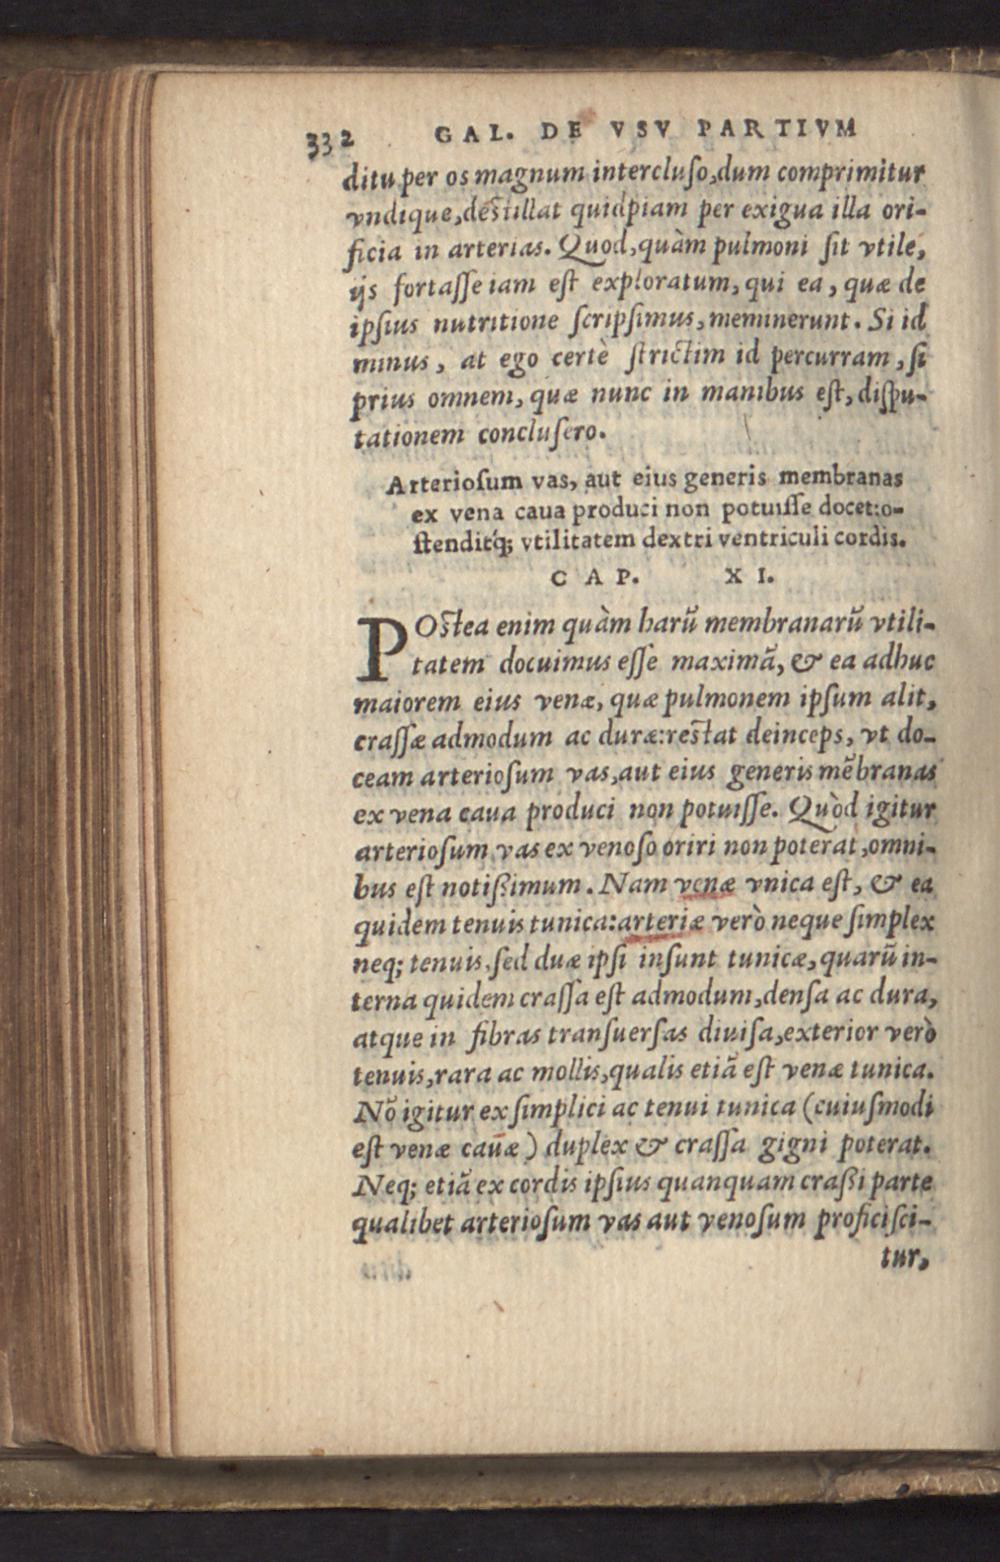 332 GAL. DE VSV PARTIVM
ditu per os magnum intercluſo, dum comprimitur
vndique, deſtillat quidpiam per exigua illa ori-
ficia in arterias. Quod, quàm pulmoni ſit vtile,
ijs fortaſſe iam eſt exploratum, qui ea, quæ de
ipſius nutritione ſcripſimus, meminerunt. Si id
minus, at ego certè ſtrictim id percurram, ſi
prius omnem, quæ nunc in manibus eſt, diſpu-
tationem concluſero.
Arterioſum vas, aut eius generis membranas
ex vena caua produci non potuiſſe docet: o-
ſtenditq́; vtilitatem dextri ventriculi cordis.
CAP. XI.
POſtea enim quàm harũ membranarũ vtili-
tatem docuimus eſſe maximã, & ea adhuc
maiorem eius venæ, quæ pulmonem ipſum alit,
craſſæ admodum ac duræ: reſtat deinceps, vt do-
ceam arterioſum vas, aut eius generis mẽbranas
ex vena caua produci non potuiſſe. Quòd igitur
arterioſum vas ex venoſo oriri non poterat, omni-
bus eſt notiſſimum. Nam venæ vnica eſt, & ea
quidem tenuis tunica: arteriæ verò neque ſimplex
neq; tenuis, ſed duæ ipſi inſunt tunicæ, quarũ in-
terna quidem craſſa eſt admodum, denſa ac dura,
atque in fibras tranſuerſas diuiſa, exterior verò
tenuis, rara ac mollis, qualis etiã eſt venæ tunica.
Nõ igitur ex ſimplici ac tenui tunica (cuiuſmodi
eſt venæ cauæ) duplex & craſſa gigni poterat.
Neq; etiã ex cordis ipſius quanquam craſſi parte
qualibet arterioſum vas aut venoſum proficiſci-
tur,